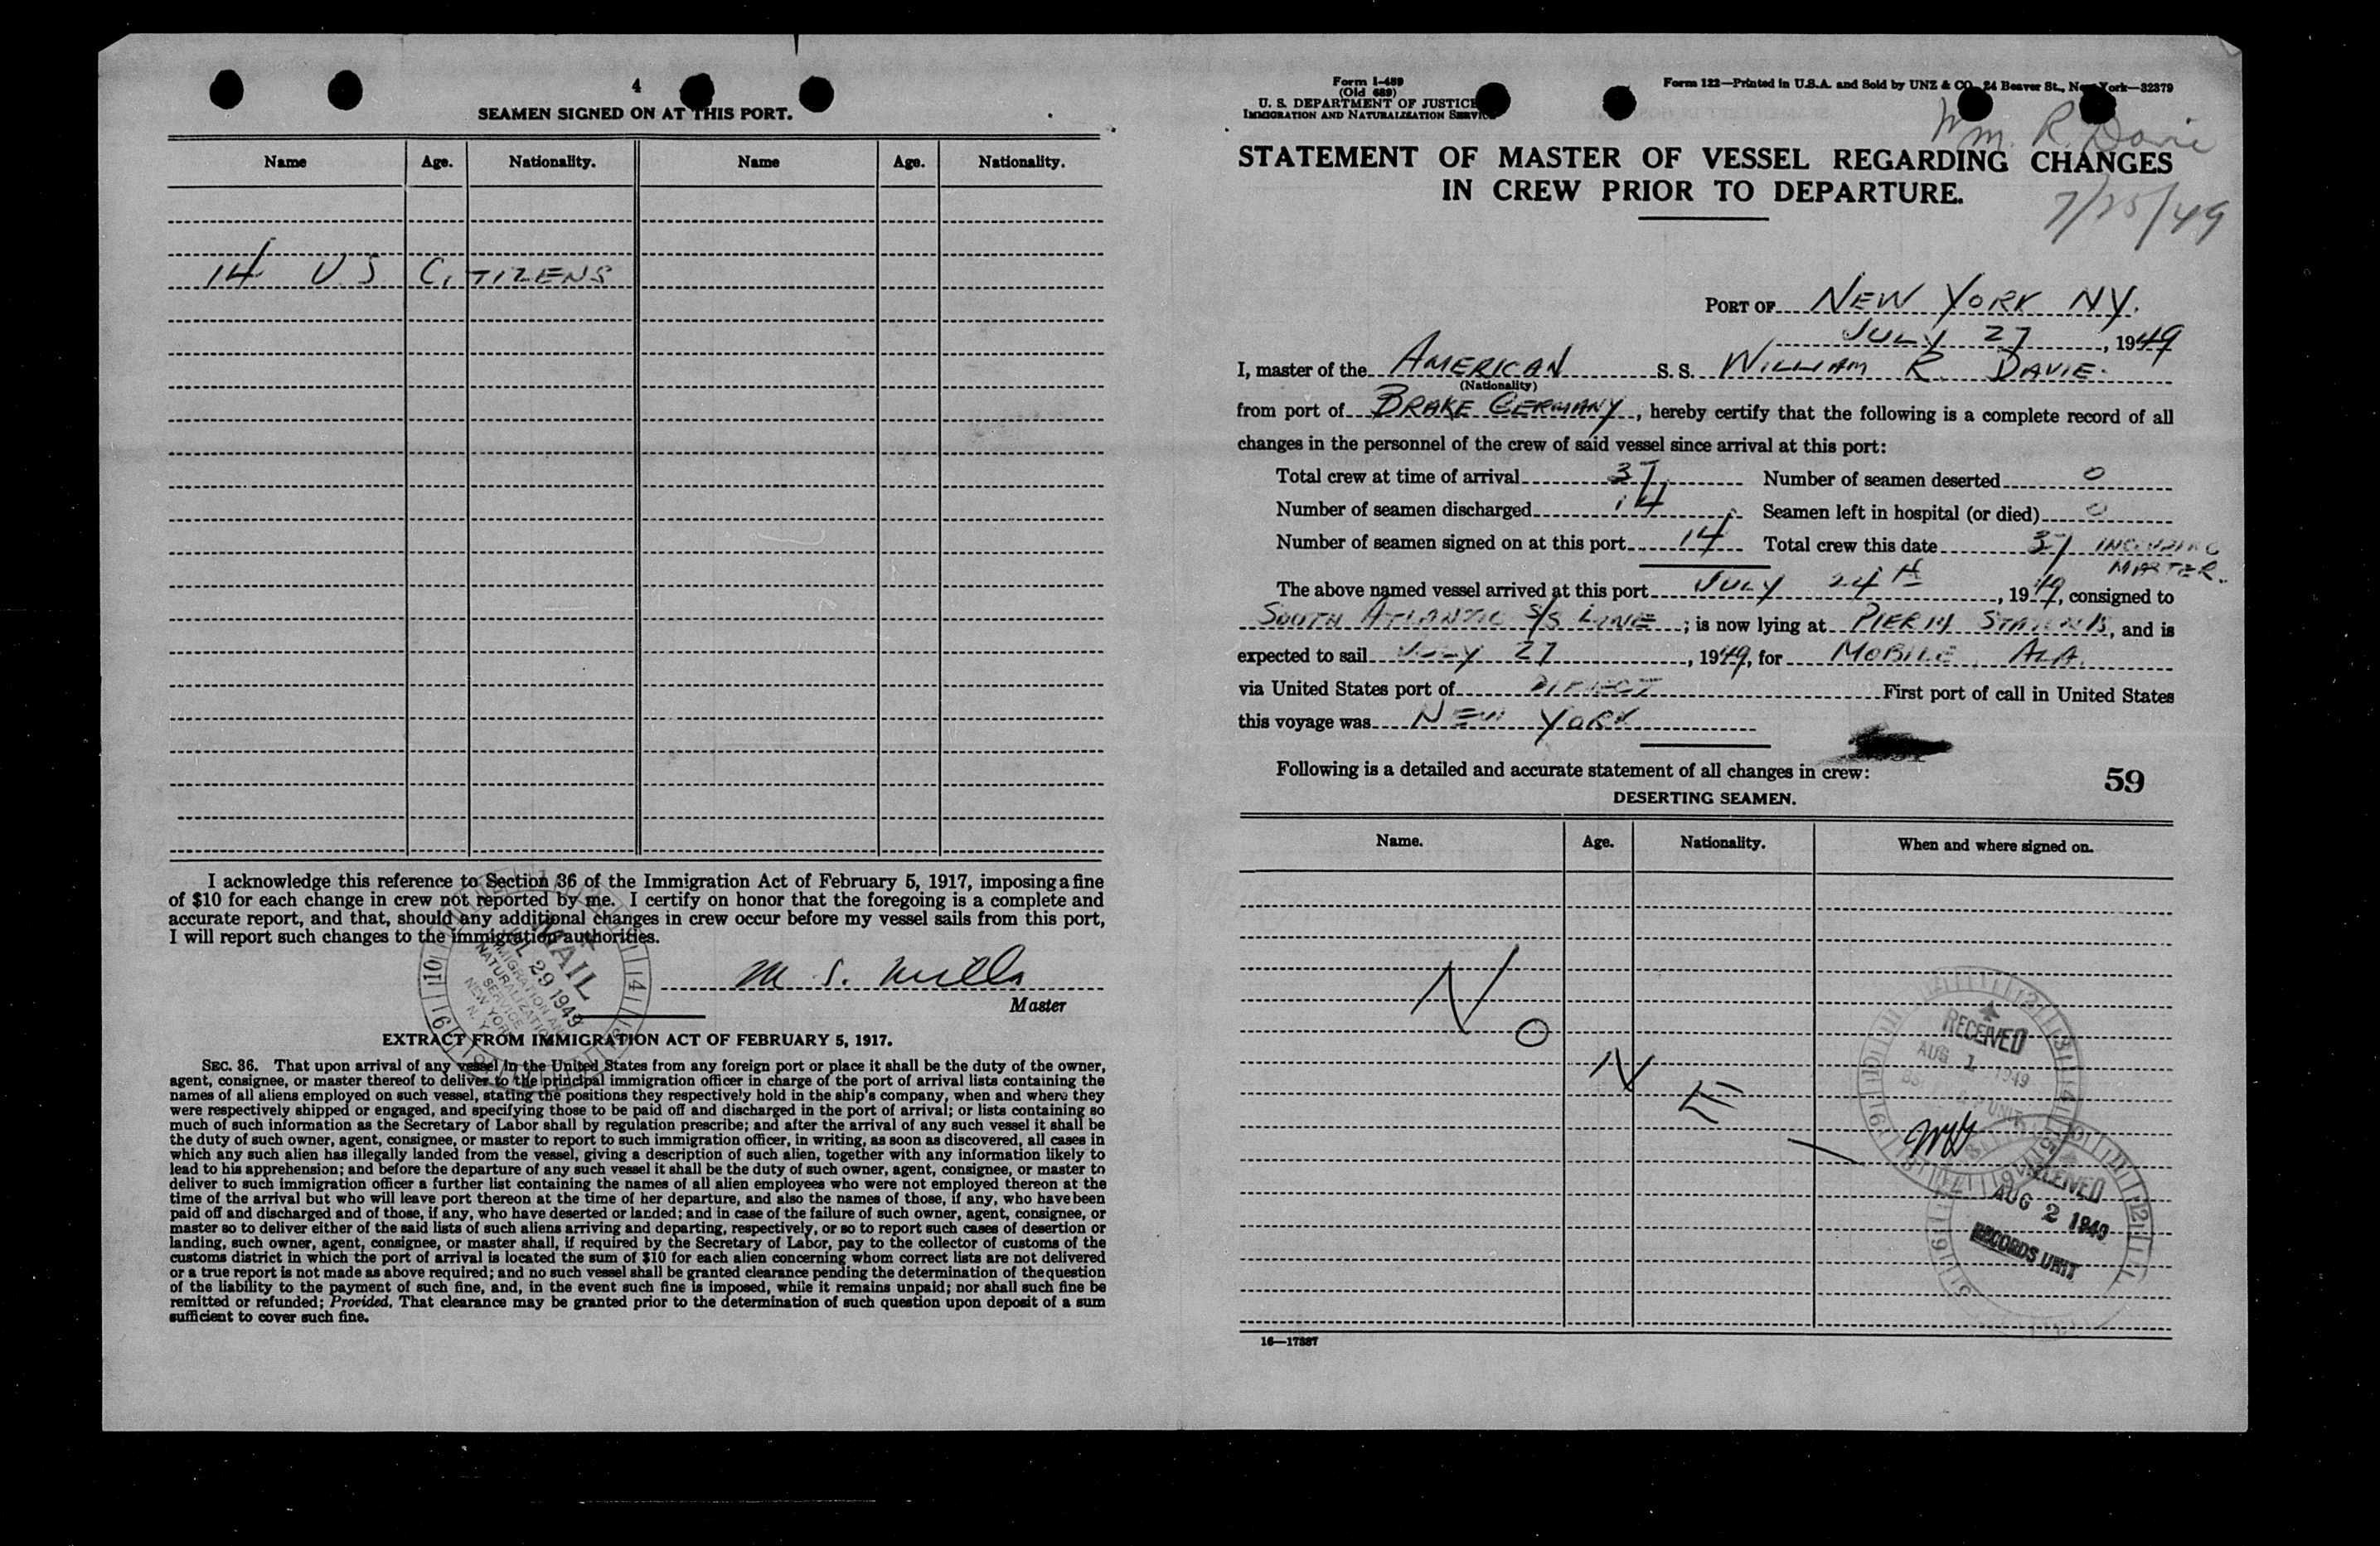 4
SEAMEN SIGNED ON AT THIS PORT.
Name Age. Nationality. Name Age. Nationality.
14 U.S. CITIZENS
I acknowledge this reference to Section 36 of the Immigration Act of February 5, 1917, imposing a fine
of $10 for each change in crew not reported by me. I certify on honor that the foregoing is a complete and
accurate report, and that, should any additional changes in crew occur before my vessel sails from this port,
I will report such changes to the immigration authorities.
M. S. Mills
Master
MAIL
JUL 29 1949
IMMIGRATION AND
NATURALIZATION
SERVICE
NEW YORK
N. Y.
EXTRACT FROM IMMIGRATION ACT OF FEBRUARY 5, 1917.
SEC. 36. That upon arrival of any vessel in the United States from any foreign port or place it shall be the duty of the owner,
agent, consignee, or master thereof to deliver to the principal immigration officer in charge of the port of arrival lists containing the
names of all aliens employed on such vessel, stating the positions they respectively hold in the ship's company, when and where they
were respectively shipped or engaged, and specifying those to be paid off and discharged in the port of arrival; or lists containing so
much of such information as the Secretary of Labor shall by regulation prescribe; and after the arrival of any such vessel it shall be
the duty of such owner, agent, consignee, or master to report to such immigration officer, in writing, as soon as discovered, all cases in
which any such alien has illegally landed from the vessel, giving a description of such alien, together with any information likely to
lead to his apprehension; and before the departure of any such vessel it shall be the duty of such owner, agent, consignee, or master to
deliver to such immigration officer a further list containing the names of all alien employees who were not employed thereon at the
time of the arrival but who will leave port thereon at the time of her departure, and also the names of those, if any, who have been
paid off and discharged and of those, if any, who have deserted or landed; and in case of the failure of such owner, agent, consignee, or
master so to deliver either of the said lists of such aliens arriving and departing, respectively, or so to report such cases of desertion or
landing, such owner, agent, consignee, or master shall, if required by the Secretary of Labor, pay to the collector of customs of the
customs district in which the port of arrival is located the sum of $10 for each alien concerning whom correct lists are not delivered
or a true report is not made as above required; and no such vessel shall be granted clearance pending the determination of the question
of the liability to the payment of such fine, and, in the event such fine is imposed, while it remains unpaid; nor shall such fine be
remitted or refunded; Provided, That clearance may be granted prior to the determination of such question upon deposit of a sum
sufficient to cover such fine.
Form I-489
(Old 689)
U. S. DEPARTMENT OF JUSTICE
IMMIGRATION AND NATURALIZATION SERVICE
Form 122—Printed in U.S.A. and Sold by UNZ & CO., 24 Beaver St., New York—32379
Wm. R. Davie
STATEMENT OF MASTER OF VESSEL REGARDING CHANGES
IN CREW PRIOR TO DEPARTURE.
7/25/49
PORT OF NEW YORK NY.
JULY 27, 1949
I, master of the AMERICAN S. S. WILLIAM R. DAVIE.
(Nationality)
from port of BRAKE GERMANY, hereby certify that the following is a complete record of all
changes in the personnel of the crew of said vessel since arrival at this port:
Total crew at time of arrival 37 Number of seamen deserted 0
Number of seamen discharged 14 Seamen left in hospital (or died) 0
Number of seamen signed on at this port 14 Total crew this date 37 INCLUDING
MASTER.
The above named vessel arrived at this port JULY 24th, 1949, consigned to
SOUTH ATLANTIC S/S LINE; is now lying at PIER 14 STATEN IS, and is
expected to sail JULY 27, 1949, for MOBILE, ALA.
via United States port of DIRECT First port of call in United States
this voyage was NEW YORK
Following is a detailed and accurate statement of all changes in crew:
59
DESERTING SEAMEN.
Name. Age. Nationality. When and where signed on.
NONE
RECEIVED
AUG 1 1949
UNIT
RECEIVED
AUG 2 1949
RECORDS UNIT
16—17387